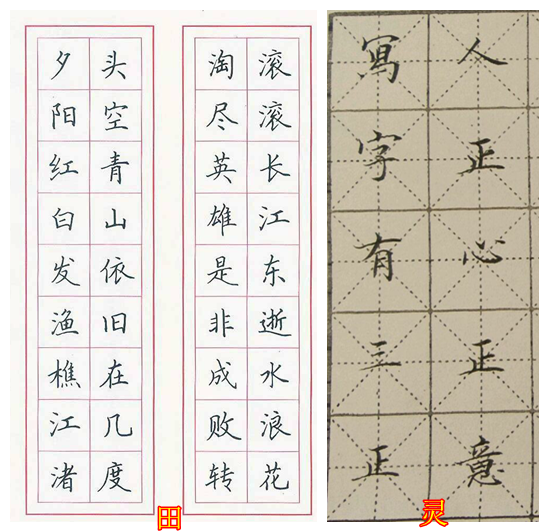 滚滚长江东逝水浪花
淘尽英雄是非成败转
头空青山依旧在几度
夕阳红白发渔樵江渚
田
人正心正意
寫字有三正
灵